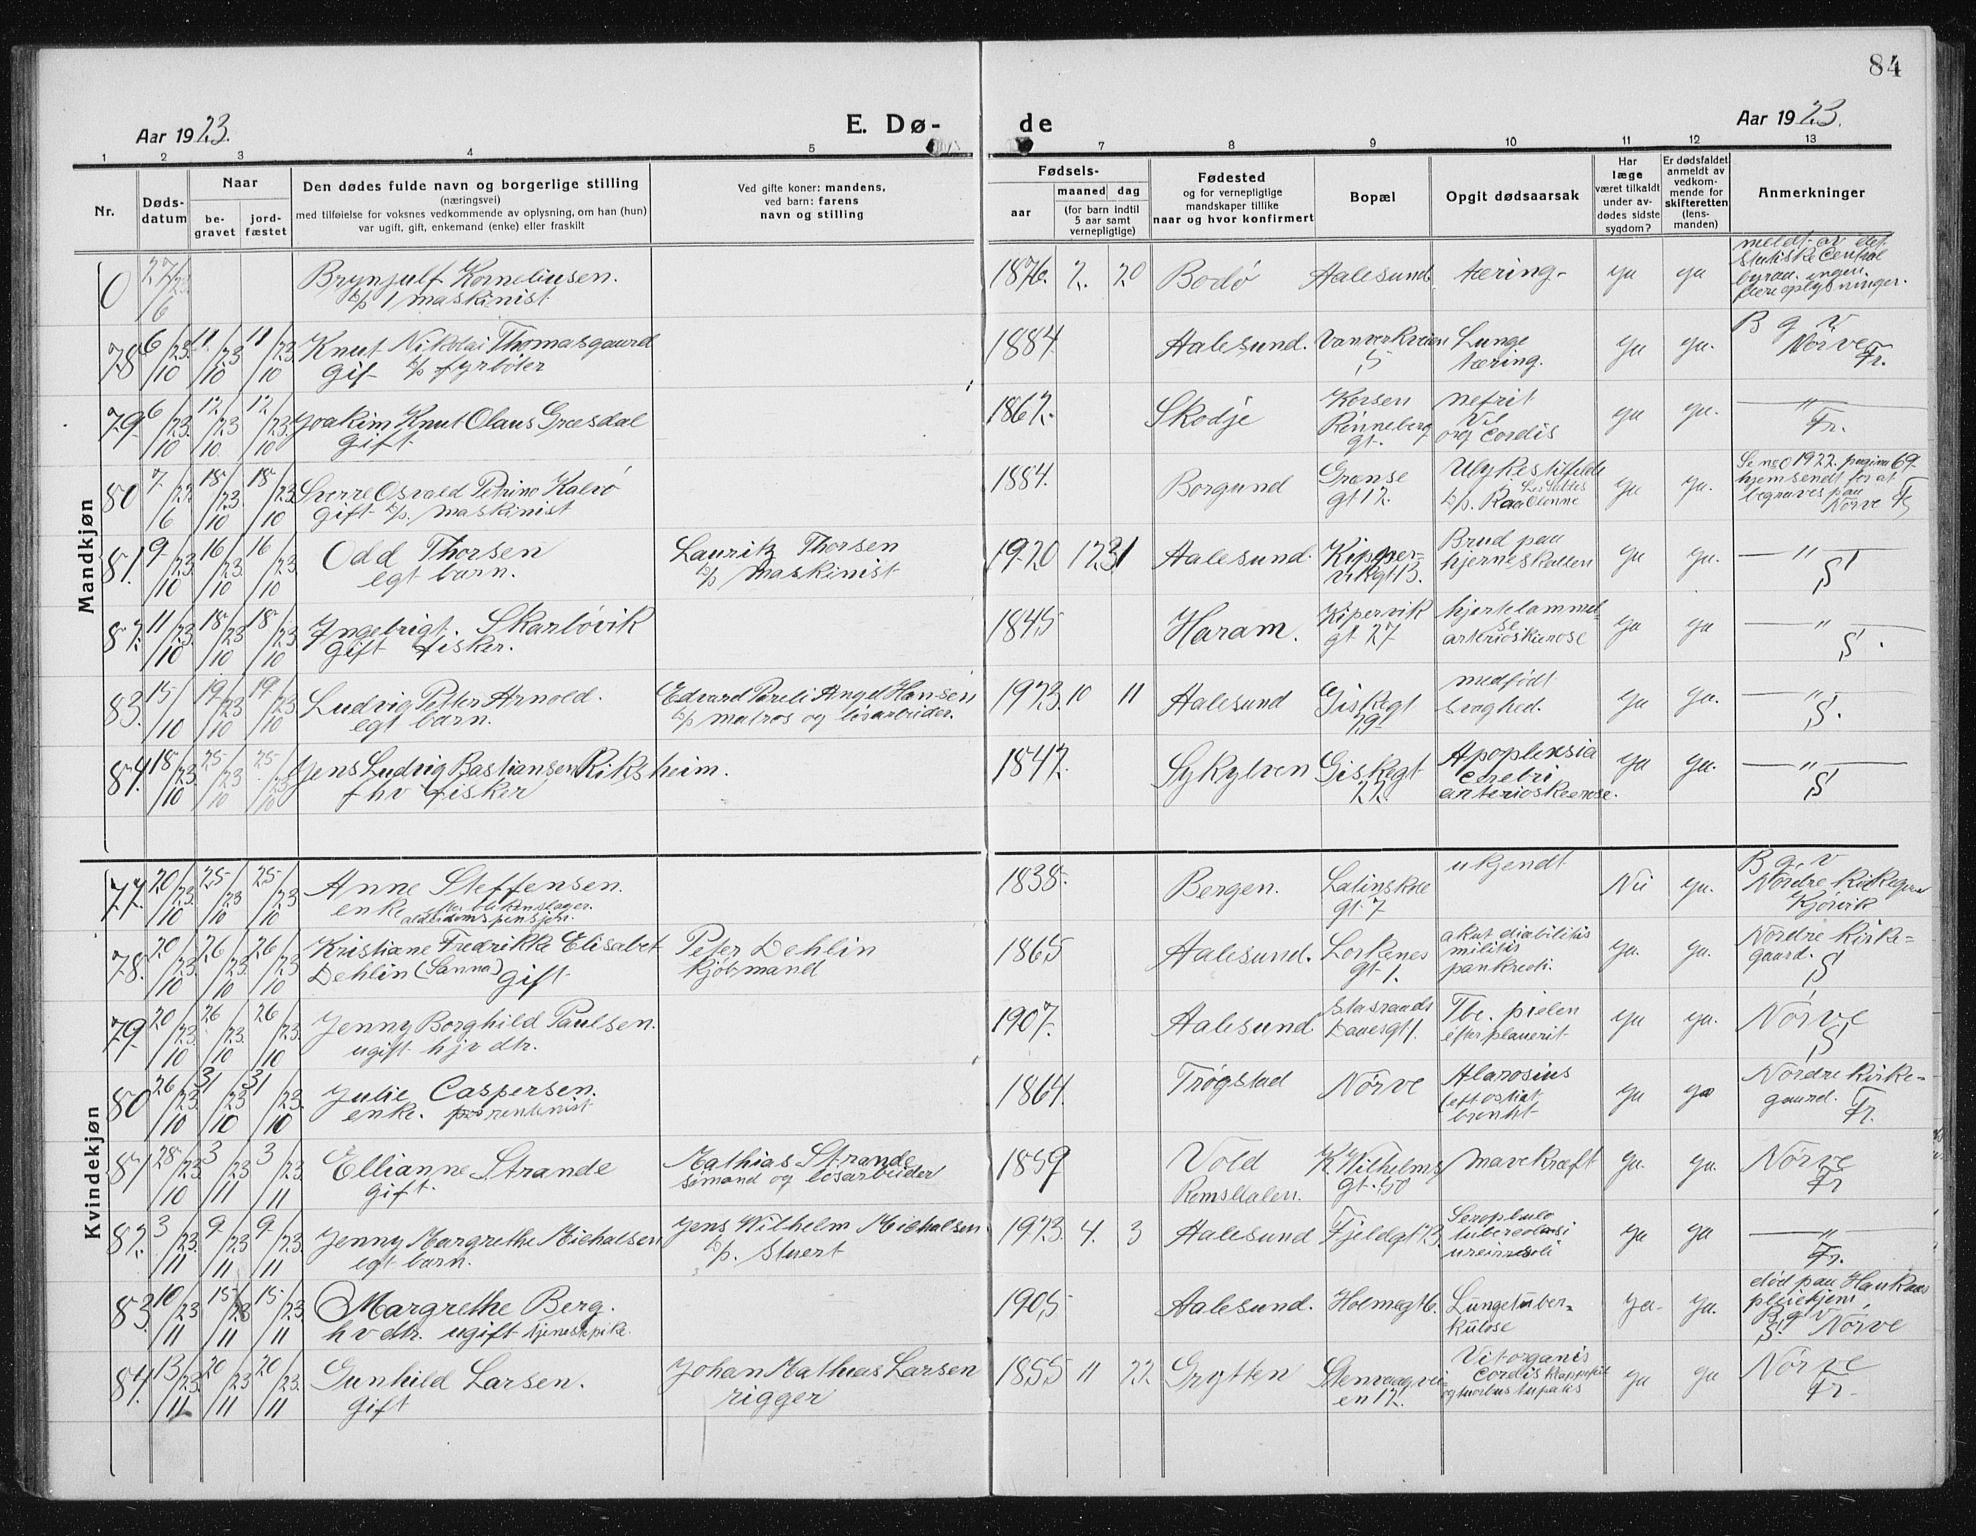 84
Aar 1923.
E. Dø-
de
Aar 1923.
1 2 3 4 5 7 8 9 10 11 12 13
Nr.
Døds-
datum
Naar
be-
gravet
jord-
fæstet
Den dødes fulde navn og borgerlige stilling
(næringsvei)
med tilføielse for voksnes vedkommende av oplysning, om han (hun)
var ugift, gift, enkemand (enke) eller fraskilt
Ved gifte koner: mandens,
ved barn: farens
navn og stilling
Fødsels-
aar
maaned dag
(for barn indtil
5 aar samt
vernepligtige)
Fødested
og for vernepligtige
mandskaper tillike
naar og hvor konfirmert
Bopæl
Opgit dødsaarsak
Har
læge
været tilkaldt
under av-
dødes sidste
sygdom?
Er dødsfaldet
anmeldt av
vedkom-
mende for
skifteretten
(lens-
manden)
Anmerkninger
Mandkjøn
0 27/6 23 Brynjulf Korneliusen.
1 maskinist
1876. 2. 20 Bodø Aalesund. tæring- ya ya
meldt av det
statiske Central
byraa. ingen
flere oplysninger.
78 6/10 23. 11/10 23 11/10 23 Knut Nikolai Thomasgaard
gif fyrbøter
1884. Aalesund. Vanverkveien
5
Lunge
tæring.
ya ya.
B g v
Nørve
Fr.
79 6/10 23. 12/10 23 12/10 23. Joakim Knut Olaus Græsdal
gift
1867. Skodje
Korsen
Rønneberg
gt.
nefrit
og Cordis
ya ya.
— " —
Fr.
80 7/6 18/10 23 18/10 23 Sverre Osvald Petrine Kalvø
gift maskinist
1884. Borgund
Grænse
gt 12.
Ulykestilfelde
ya ya.
Se no 0 1922. pagina 69
hjemsendt for at
begraves paa
Nørve Fr
81. 9/10 23. 16/10 23. 16/10 23. Odd Thorsen
egt barn.
Lauritz Thorsen
maskinist
1920 12 31 Aalesund.
Kipper-
vikgt 13.
Brud paa
hjerneskallen
ya ya.
— " —
S
82. 11/10 23. 18/10 23 18/10 23. Ingebrigt. Skarbøvik
gift fisker.
1845 Haram.
Kipervik
gt 27
hjertelammel-
se
ya ya
— " —
S.
83. 15/10 19/10 23 19/10 23 Ludvig Petter Arnold.
egt barn.
matros og løsarbeider.
1923. 10 11 Aalesund
Giskegt
29
medfødt
svaghed.
ya ya.
— " —
S.
84. 18/10 23. 25/10 23 25/10 23 Jens Ludvig Bastiansen Riksheim.
fhv fisker
1847. Sykylven
Giskegt
22.
Apoplexsia
Cerebri
ya ya.
— " —
S
Kvindekjøn
77. 20/10 23. 25/10 23 25/10 23. Anne Steffensen.
enke
1838. Bergen.
Latinskole
gt 7
ukjendt
Nei ya.
B g. v
Nordre kirkegaard
78. 20/10 23. 26/10 23 26/10 23. Kristiane Fredrikke Elisabet
Dehlin (Sanna) gift
Peter Dehlin
kjøbmand
1865 Aalesund.
Lorkenes
gt 1.
akut diabilitis
militis
pankreati.
ya. ya.
Nordre kirke=
gaard.
S
79. 20/10 23. 26/10 23 26/10 23. Jenny Borghild Paulsen.
ugift hjv dtr.
1907. Aalesund
ya ya.
Nørve
S
80 26/10 23. 31/10 23 31/10 23. Julie Caspersen.
enke.
1864. Trøgstad Nørve
ya ya
Nordre kirke-
gaard.
Fr.
81 28/10 23. 3/11 23 3/11 23. Ellianne Strande
gift.
Mathias Strande
sømand og løsarbeider
1859
Vold
Romsdalen.
K. Wilhelms
gt. 50
mavekræft
ya. ya.
Nørve
Fr
82. 3/11 23. 9/11 23 9/11 23. Jenny Margrethe Michalsen
egt barn.
Jens Wilhelm Michalsen
Stuert
1923. 4. 3 Aalesund Fjeldgt 23.
ya ya
— " —
Fr.
83. 10/11 23 15/11 23 15/11 23. Margrethe Berg.
hv dtr. ugift tjenestepike
1905 Aalesund. Holmegt 6.
Lungetuber-
kulose
ya- ya.
død paa
pleiehjem,
B g V
S. Nørve
84. 13/11 23. 20/11 23 20/11 23. Gunhild Larsen.
gift
Johan Mathias Larsen
rigger
1855 11 22. Grytten
Stenvaagvei-
en 12.
Vitorganis
Cordis
ya ya
Nørve
Fr.